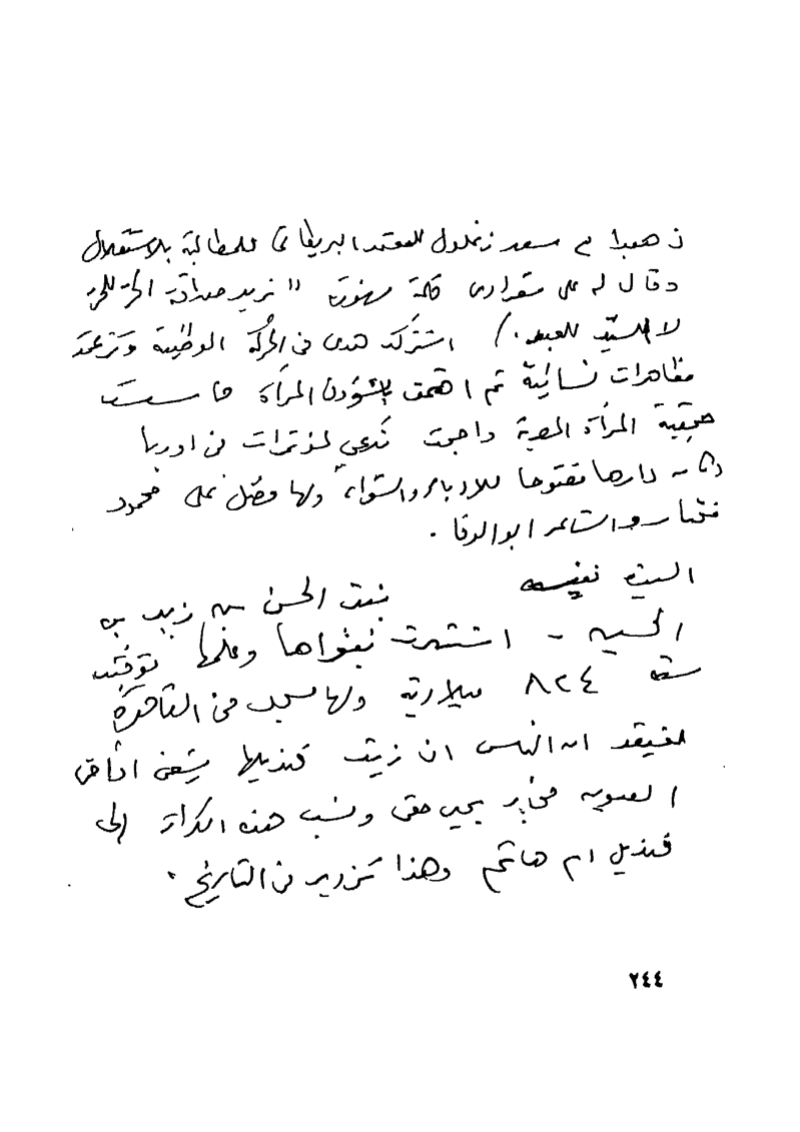 ذهبوا مع سعد زغلول للمعتمد البريطاني للمطالبة بالاستقلال
وقال له على شعراوى كلمة مشهورة " نريد صداقة الحر للحر
لا السيد للعبد . ) اشتركت هدى في الحركة الوطنية وتزعمت
مظاهرات نسائية ثم اهتمت بشؤون المرأة فأسست
جمعية المرأة المصرية واصبحت تدعى لمؤتمرات في اوربا
وكانت دارها مفتوحا للادباء والشعراء ولها فضل على محمود
مختار والشاعر ابو الوفا .
السيدة نفيسه بنت الحسن بن زيد بن
الحسن - اشتهرت بتقواها وعلمها توفيت
سنة ٨٢٤ ميلادية ولها مسجد في القاهرة
يعتقد الناس ان زيت قنديلها يشفى امراض
العيون يحيى حقى ونسب هذه الكرامة إلى
قنديل ام هاشم وهذا تزوير في التاريخ .
٢٤٤